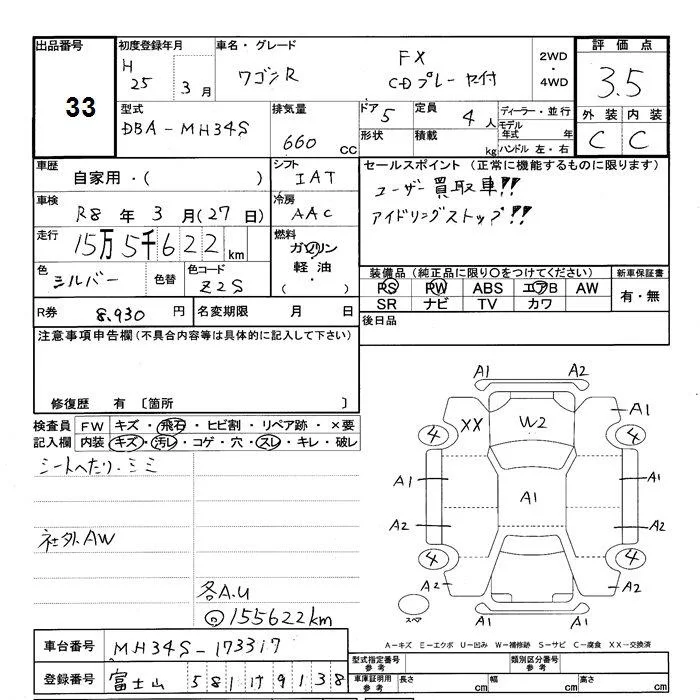 出品番号 初度登録年月 車名・グレード 評価点
33 H 25年 3月 ワゴンR FX CDプレーヤ付 2WD・4WD 3.5
型式 排気量 ドア 5 定員 4人 ディーラー・並行 外装 内装
DBA-MH34S 660cc 形状 積載 kg モデル年式 年 C C
ハンドル 左・右
車歴 自家用・( ) シフト IAT セールスポイント (正常に機能するものに限ります)
車検 R8年 3月(27日) 冷房 AAC ユーザー買取車!!
走行 15万5千622km 燃料 ガソリン・軽油・( ) アイドリングストップ!!
色 シルバー 色替 色コード Z2S 装備品(純正品に限り○をつけてください) 新車保証書
PS PW ABS エアB AW 有・無
R券 8,930円 名変期限 月 日 SR ナビ TV カワ
注意事項申告欄(不具合内容等は具体的に記入して下さい) 後日品
修復歴 有 〔箇所 〕
検査員記入欄 FW キズ・飛石・ヒビ割・リペア跡・×要
内装 キズ・汚レ・コゲ・穴・スレ・キレ・破レ
シートへたり・シミ
社外AW
各A.U
155622km
A1 A2
XX W2 A1
4 4
A1 A1 A1
A2 A2
4 4
A2 A2
スペア
A1 A2
A-キズ E-エクボ U-凹み W-補修跡 S-サビ C-腐食 XX-交換済
車台番号 MH34S-173317 型式指定番号 参考 類別区分番号 参考
登録番号 富士山 581 け 9138 車庫証明用 参考 長さ cm 幅 cm 高さ cm